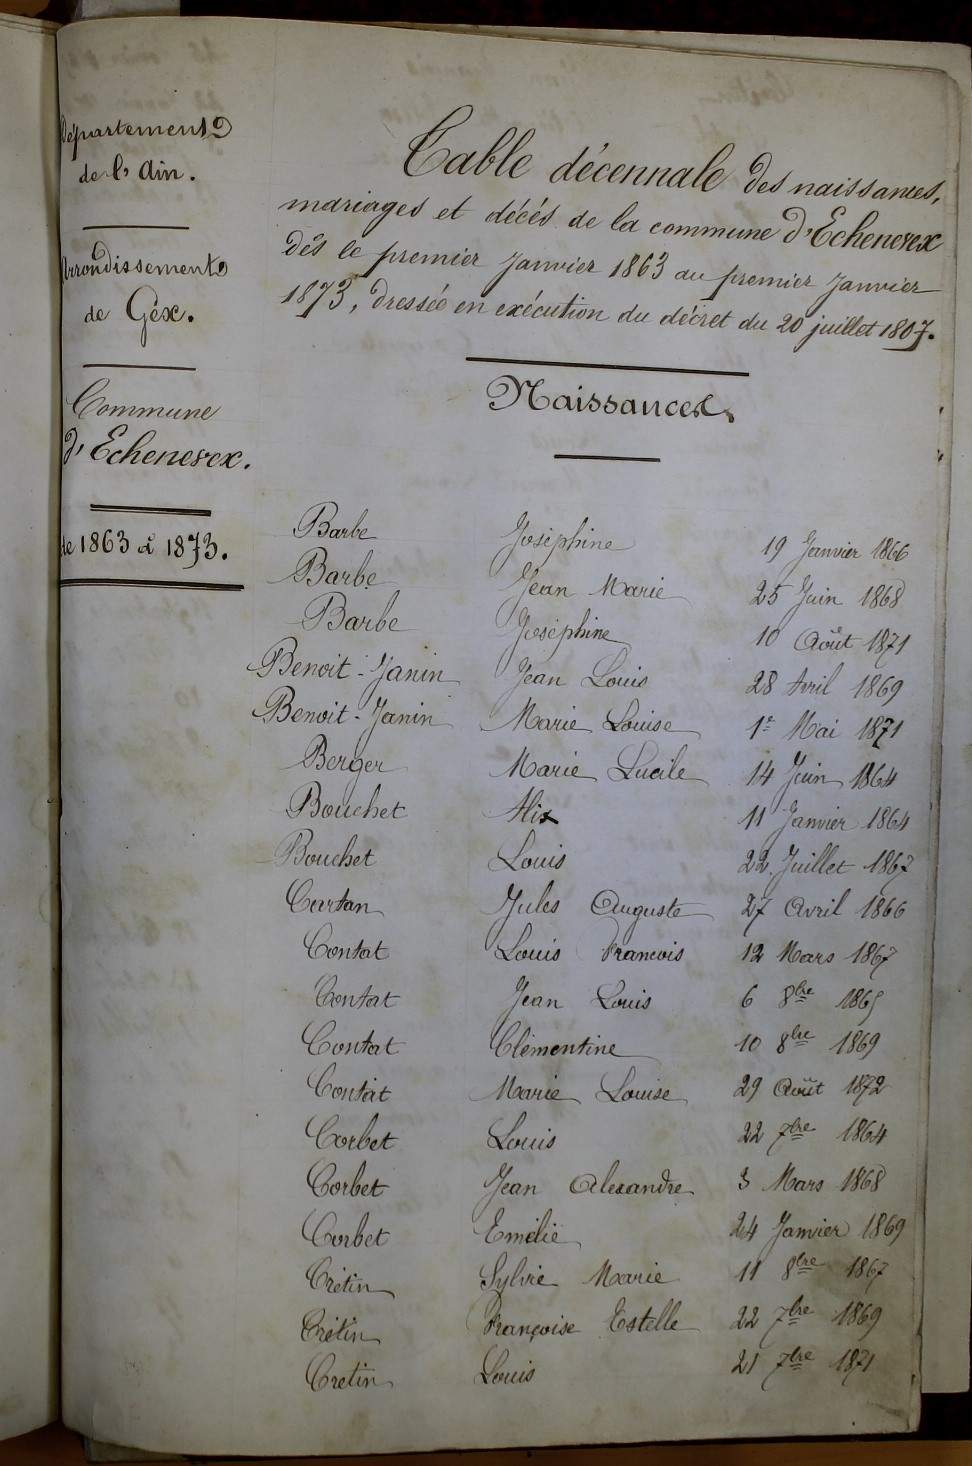 Département
de l'Ain.
Arrondissement
de Gex.
Commune
d'Echenevex.
de 1863 à 1873.
Table décennale des naissances,
mariages et décés de la commune d'Echenevex
dès le premier Janvier 1863 au premier Janvier
1873, dressée en exécution du décret du 20 juillet 1807.
Naissances.
Barbe Joséphine 19 Janvier 1866
Barbe Jean Marie 25 Juin 1868
Barbe Joséphine 10 Août 1871
Benoit-Janin Jean Louis 28 Avril 1869
Benoit-Janin Marie Louise 1r Mai 1871
Berger Marie Lucile 14 Juin 1864
Bouchet Alix 11 Janvier 1864
Bouchet Louis 22 Juillet 1867
Cartan Jules Auguste 27 Avril 1866
Contat Louis Francois 12 Mars 1867
Contat Jean Louis 6 8bre 1865
Contat Clémentine 10 8bre 1869
Contat Marie Louise 29 Août 1872
Corbet Louis 22 7bre 1864
Corbet Jean Alexandre 3 Mars 1868
Corbet Emélie 24 Janvier 1869
Crétin Sylvie Marie 11 8bre 1867
Crétin Françoise Estelle 22 7bre 1869
Cretin Louis 21 7bre 1871